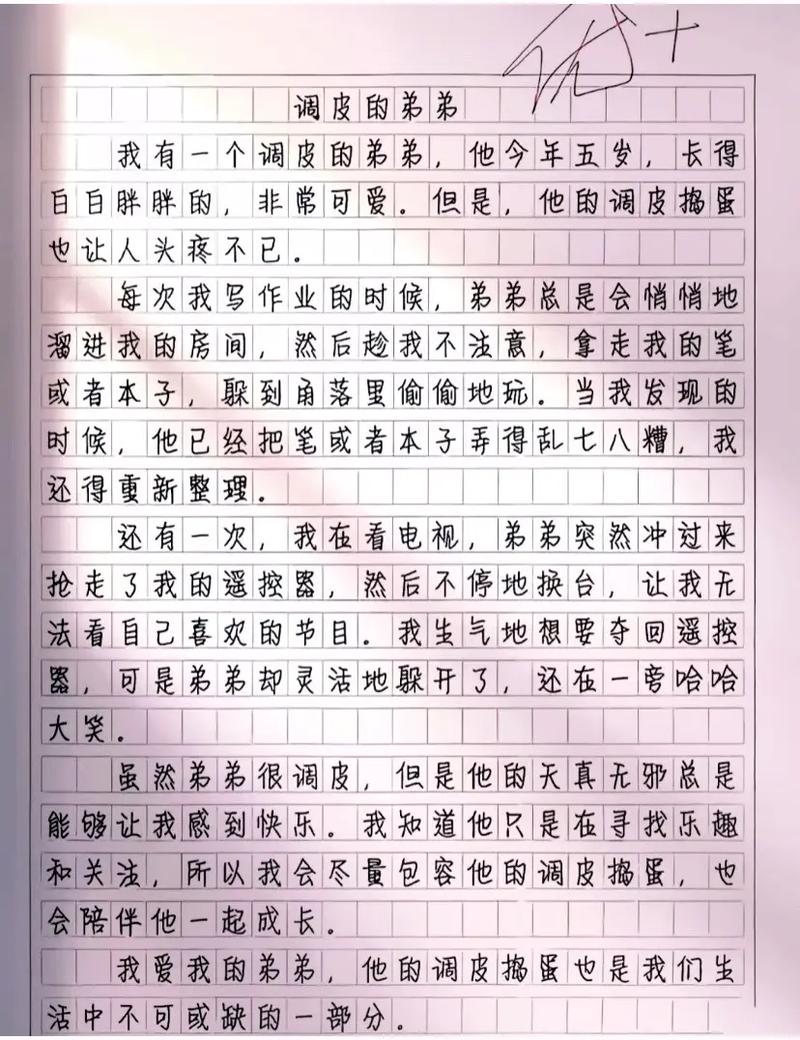 优+
调皮的弟弟
我有一个调皮的弟弟，他今年五岁，长得
白白胖胖的，非常可爱。但是，他的调皮捣蛋
也让人头疼不已。
每次我写作业的时候，弟弟总是会悄悄地
溜进我的房间，然后趁我不注意，拿走我的笔
或者本子，躲到角落里偷偷地玩。当我发现的
时候，他已经把笔或者本子弄得乱七八糟，我
还得重新整理。
还有一次，我在看电视，弟弟突然冲过来
抢走了我的遥控器，然后不停地换台，让我无
法看自己喜欢的节目。我生气地想要夺回遥控
器，可是弟弟却灵活地躲开了，还在一旁哈哈
大笑。
虽然弟弟很调皮，但是他的天真无邪总是
能够让我感到快乐。我知道他只是在寻找乐趣
和关注，所以我会尽量包容他的调皮捣蛋，也
会陪伴他一起成长。
我爱我的弟弟，他的调皮捣蛋也是我们生
活中不可或缺的一部分。